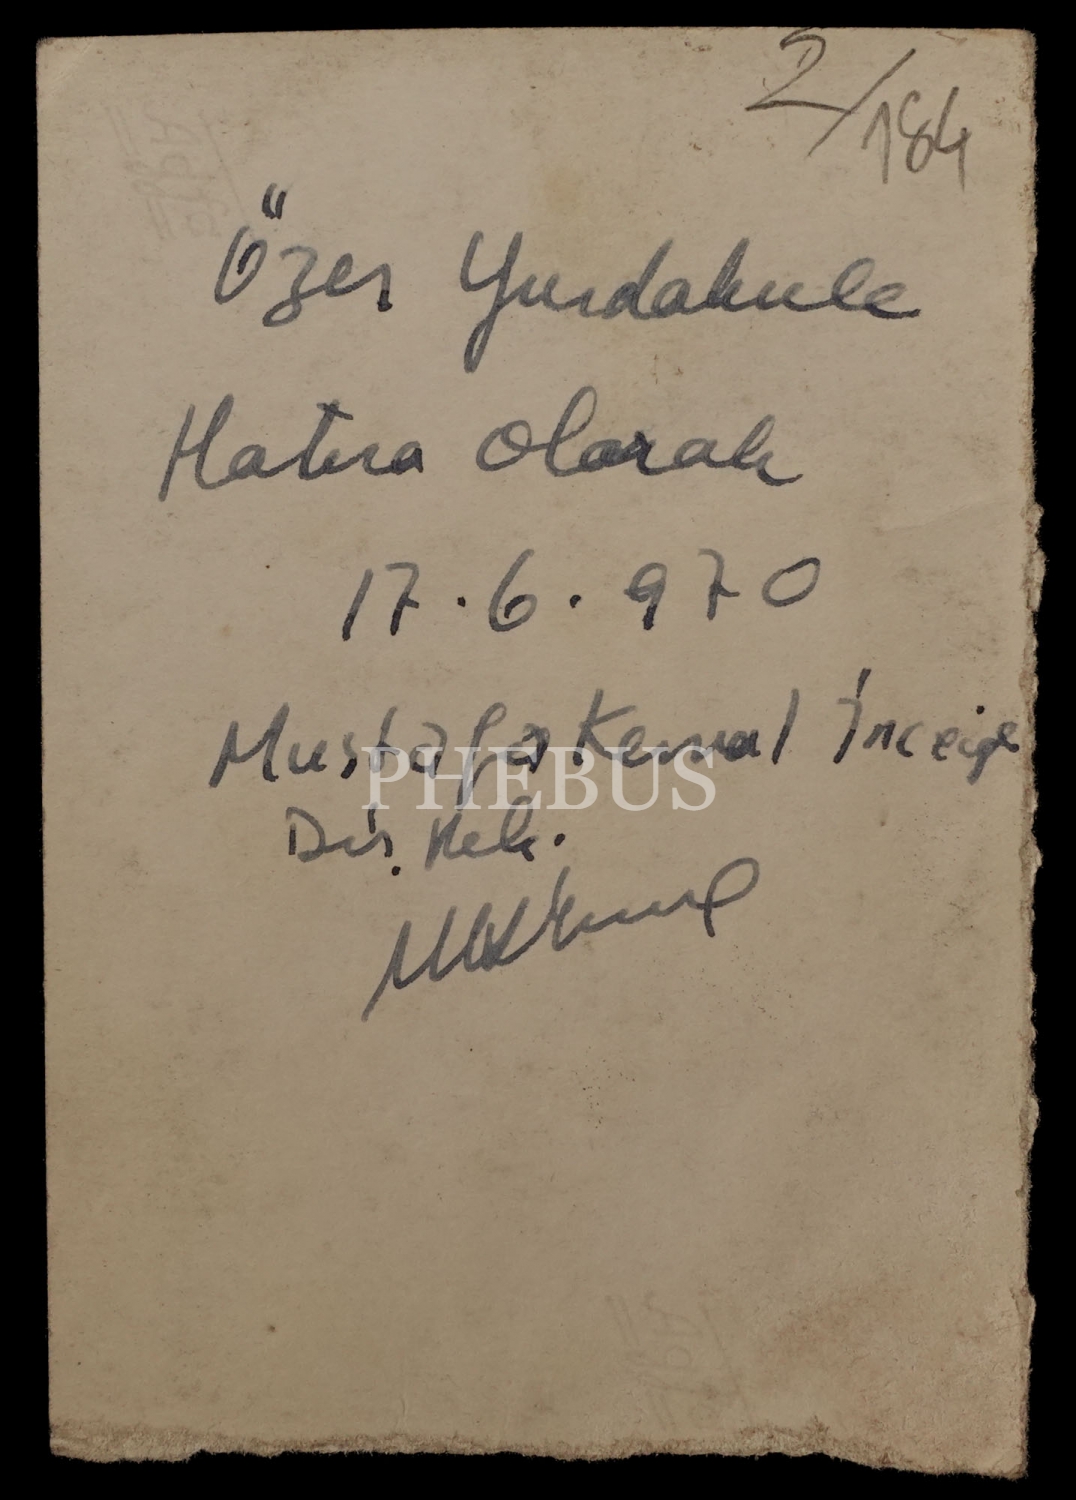 2/184
Özer Yurdakule
Hatıra olarak
17.6.970
Mustafa Kemal
PHEBUS
Diş Hek.